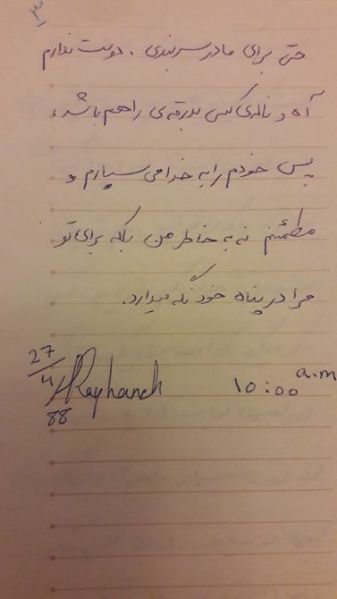 ۳
حتی برای مادر سربندی. دوست ندارم
آه و ناله‌ی کسی بدرقه‌ی راهم باشد،
پس خودم را به خدا می سپارم و
مطمئنم نه به خاطر من بلکه برای تو
مرا در پناه خود نگه میدارد.
27/4/88 Rayhaneh ۱۰:۰۰ a.m